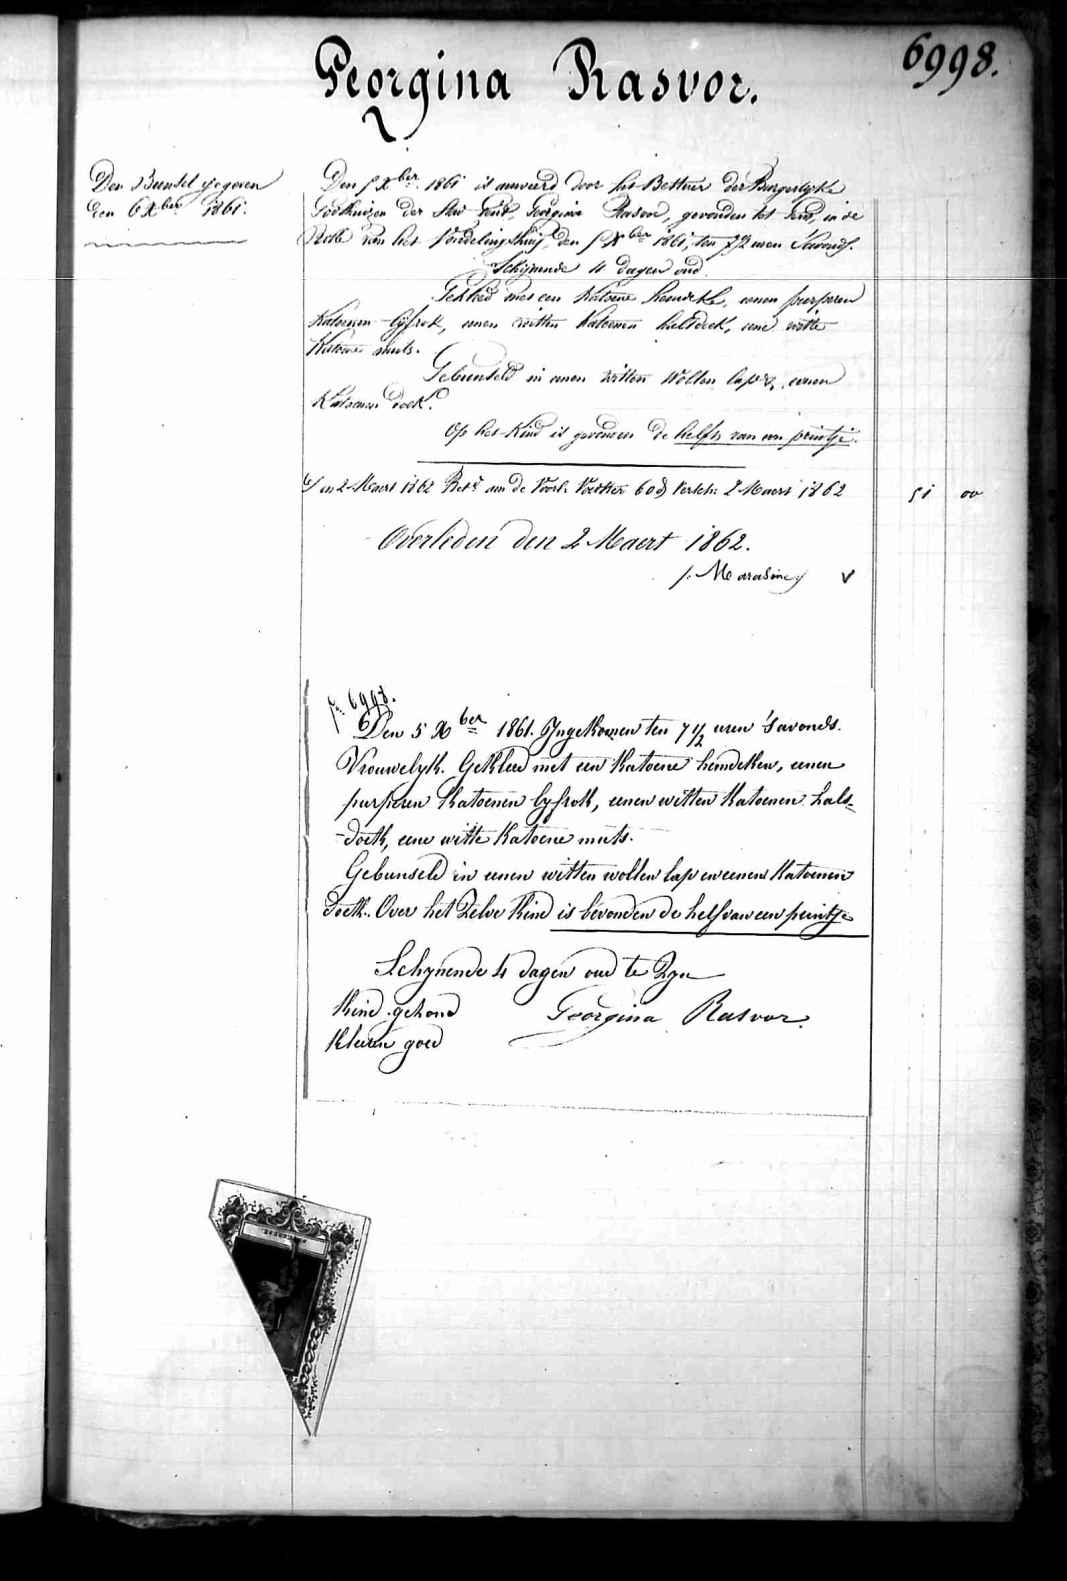 6998.
Georgina Rasvor.
Den Bunsel gegeven
den 6 Xber 1861.
Den 5 Xber 1861 is aanveerd door het Bestuer der Burgerlyke
Godshuizen der Stad Gend, Georgina Rasvor, gevonden tot Gend, in de
Rolle van het Vondelingshuis, den 5 Xber 1861, ten 7 1/2 uren 'Savonds.
Schynende 4 dagen oud.
Gekleed met een Katoene hemdeke, eenen purperen
Katoenen lyfrok, eenen witten Katoenen halsdoek, eene witte
Katoene muts.
Gebunseld in eenen witten Wollen lap &, eenen
Katoenen doek.
Op het Kind is gevonden de helft van een printje.
den 2 Maert 1862 Bet. aan de Voorl. Voedster 60 d Verschn 2 Maert 1862 51 00
Overleden den 2 Maert 1862.
V
f. 6998.
Den 5 Xber 1861. Ingekomen ten 7 1/2 uren 'Savonds.
Vrouwelyk. Gekleed met een Katoene hemdeken, eenen
purperen Katoenen lyfrok, eenen witten Katoenen hals-
doek, eene witte Katoene muts.
Gebunseld in eenen witten wollen lap en eenen Katoenen
doek. Over het Zelve Kind is bevonden de helf van een printje
Schynende 4 dagen oud te Zyn
Kind gehond Georgina Rasvor.
Kleeren goed